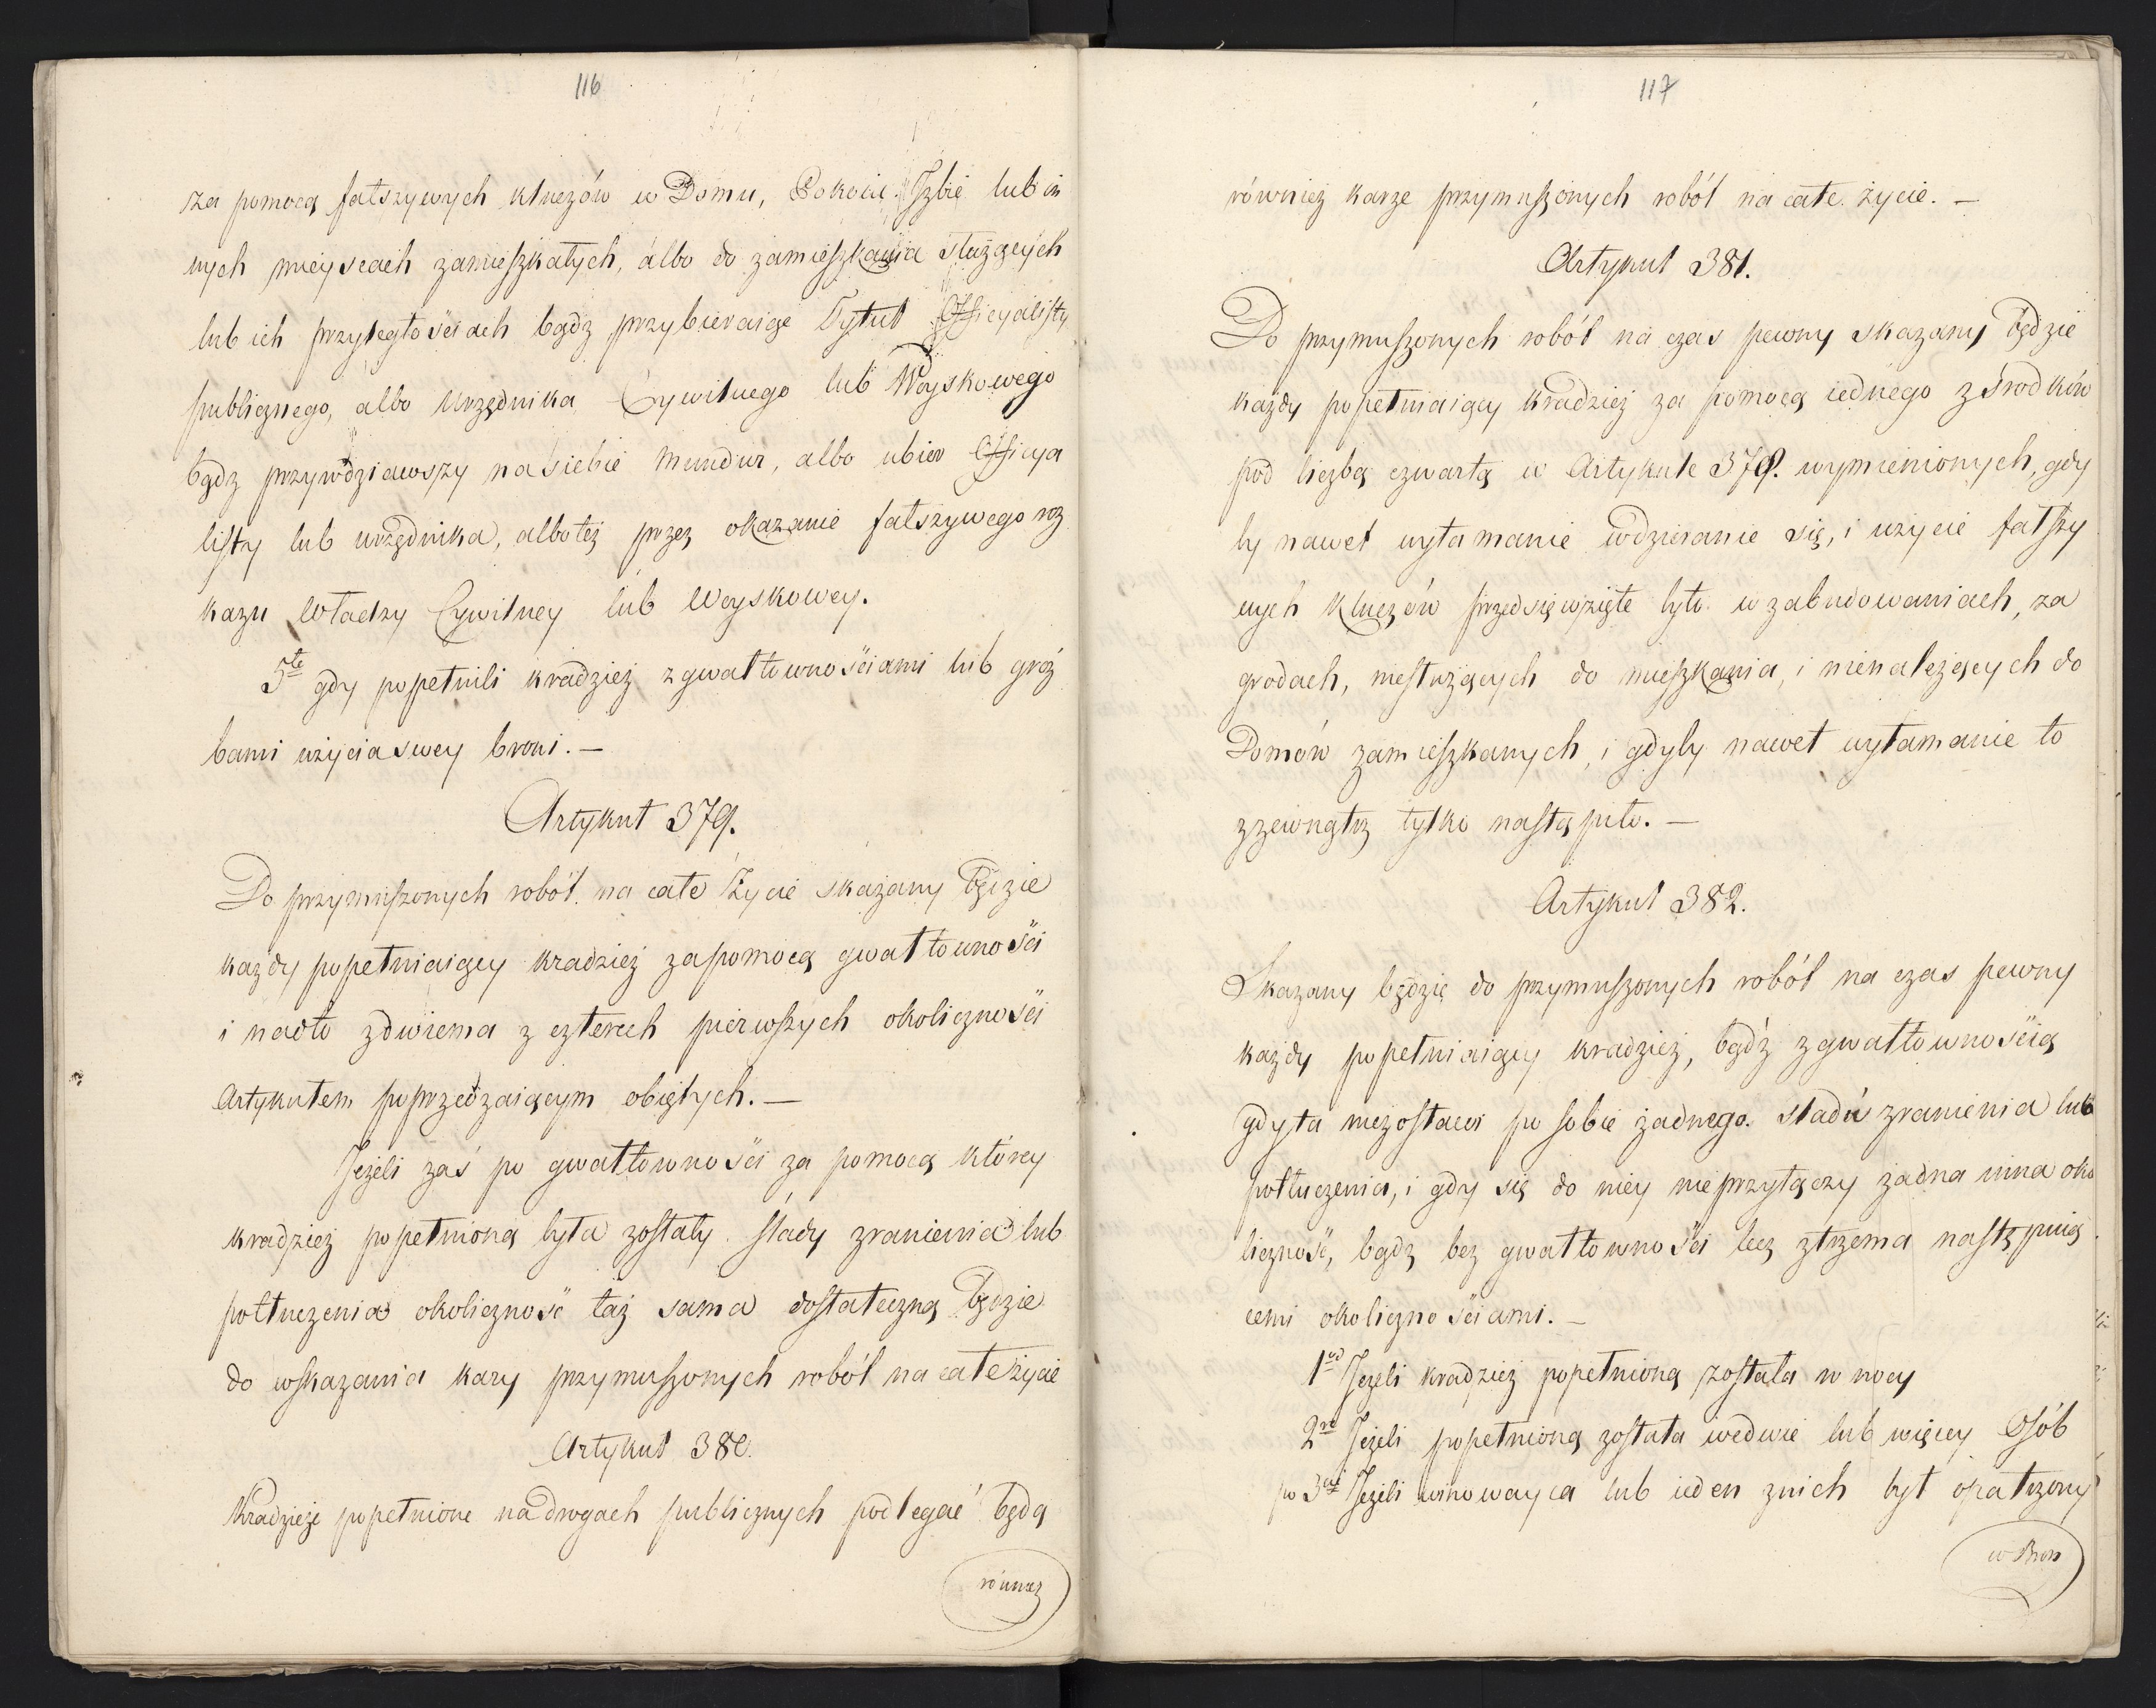 116
za pomocą fałszywych kluczów w Domu, Pokoiu Jzbie lub in
nych mieyscach zamieszkałych, albo do zamieszkania służących
lub ich przyległościach bądz przybieraiąc Tytuł Officyalisty
publicznego, albo Urzędnika Cywilnego lub Woyskowego
bądz przywdziawszy na siebie Mundur, albo ubior Officya
listy lub urzędnika, albo też przez okazanie fałszywego roz
kazu Władzy Cywilney lub Woyskowey.
5te gdy popełnili kradzież z gwałtownościami lub groź
bami użycia swey broni. —
Artykuł 379.
Do przymuszonych robót na całe Życie skazany będzie
każdy popełniaiący kradzież za pomocą gwałtowności
i nadto z dwiema z czterech pierwszych okoliczności
Artykułem poprzedzaiącym obiętych. —
Jeżeli zaś po gwałtowności za pomocą którey
kradzież popełnioną była zostały ślady zranienia lub
potłuczenia okoliczność taż sama dostateczną będzie
do wskazania kary przymuszonych robót na całe życie
Artykuł 380.
Kradzieże popełnione na drogach publicznych podlegać będą
równiez
117
również karze przymuszonych robót na całe życie. —
Artykuł 381.
Do przymuszonych robót na czas pewny skazany będzie
każdy popełniaiący kradzież za pomocą iednego z środków
pod liczbą czwartą w Artykule 378. wymienionych, gdy
by nawet wyłamanie wdzieranie się, i użycie fałszy
wych kluczów przedsięwzięte było w zabudowaniach, za
grodach, niesłużących do mieszkania, i nienależących do
Domów zamieszkanych, i gdyby nawet wyłamanie to
z zewnątrz tylko nastąpiło. —
Artykuł 382.
Skazany będzie do przymuszonych robót na czas pewny
każdy popełniaiący kradzież, bądź z gwałtownością
gdy ta niezostawi po sobie żadnego sladu zranienia lub
potłuczenia, i gdy się do niey nieprzyłączy żadna inna oko
liczność, bądz bez gwałtowności lecz z trzema następuią
cemi okolicznościami. —
1od Jeżeli kradzież popełnioną została w nocy
2re Jeżeli popełnioną została we dwie lub więcey Osób
po 3cie Jeżeli winowayca lub ieden z nich był opatrzony
w Broń